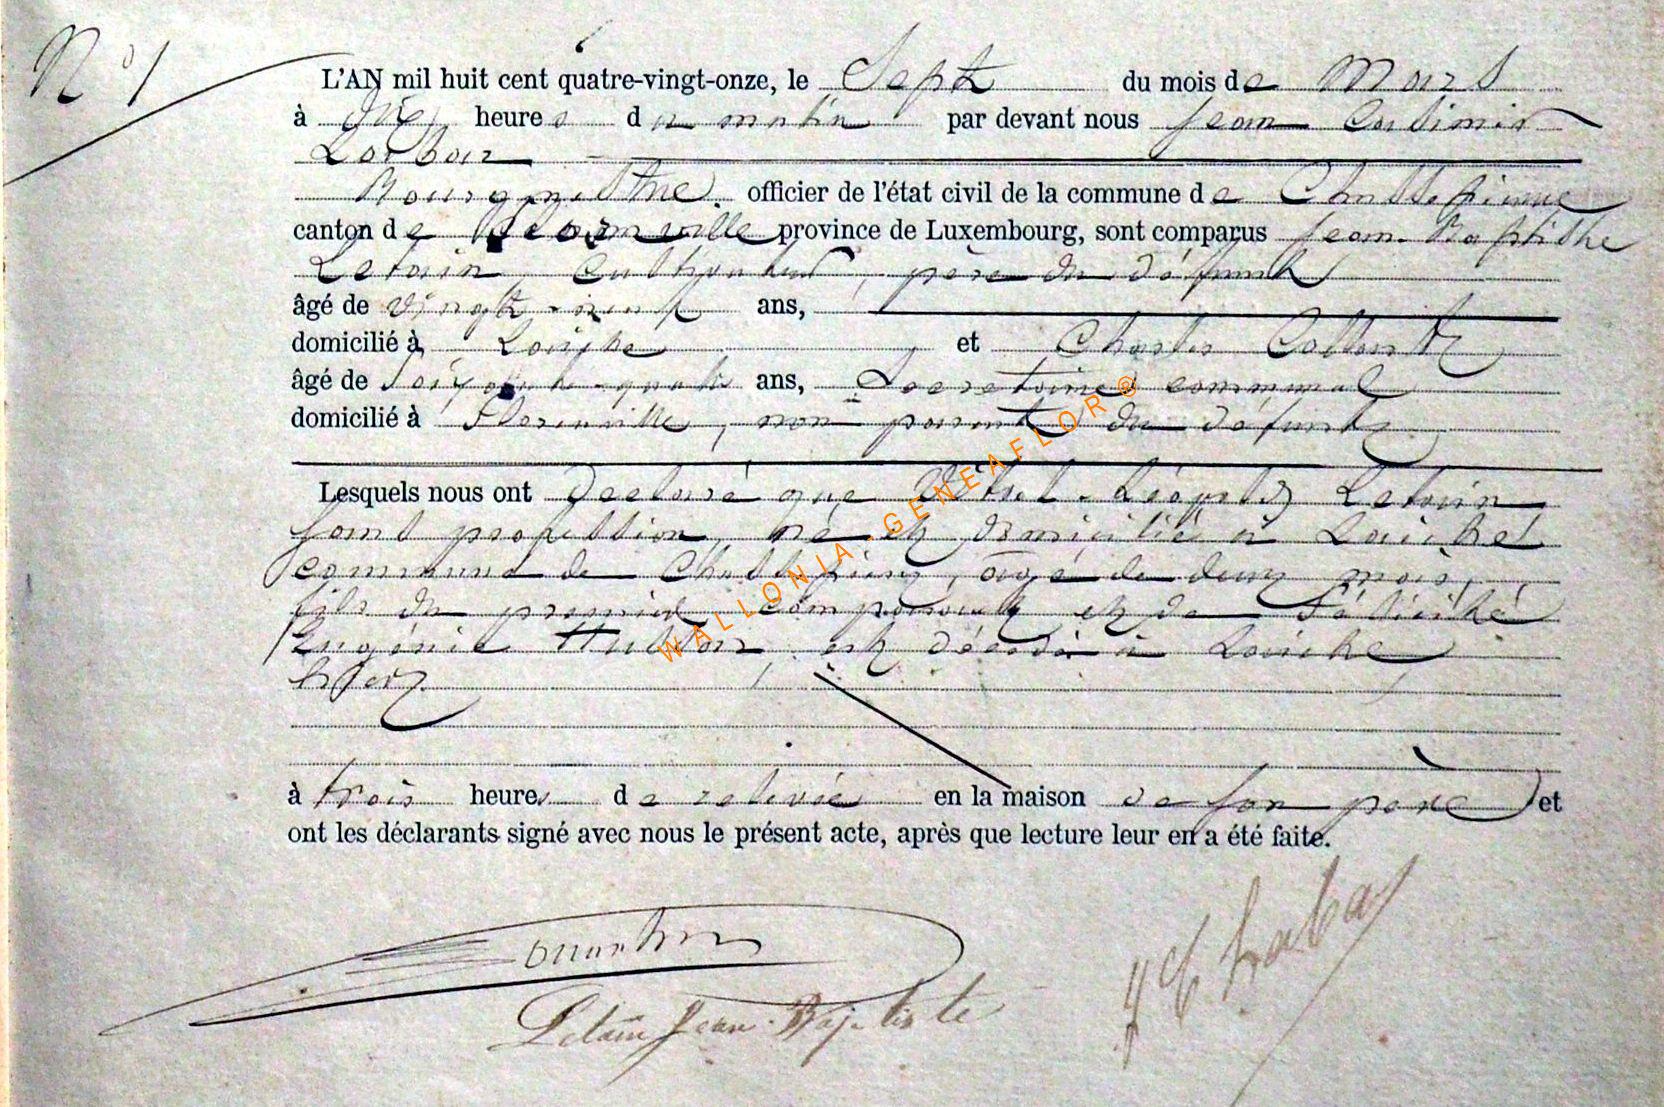 N° 1
L'AN mil huit cent quatre-vingt-onze, le Sept du mois de Mars
à dix heures du matin par devant nous Jean Casimir
Bourgmestre officier de l'état civil de la commune de Chassepierre
canton de Florenville province de Luxembourg, sont comparus Jean-Baptiste
Letain, Cultivateur, père du défunt,
âgé de vingt-neuf ans,
domicilié à Laiche et Charles
âgé de soixante-quatre ans, Secrétaire communal
domicilié à Florenville, non parent du défunt
Lesquels nous ont déclaré que Léopold Letain
sans profession, né et domicilié à Laiche
commune de Chassepierre, âgé de deux mois,
fils du premier comparant et de Félicité
Eugénie, est décédé à Laiche,
hier
à trois heures de relevée en la maison de son père et
ont les déclarants signé avec nous le présent acte, après que lecture leur en a été faite.
Letain Jean-Baptiste
WALLONIA-GENEAFLOR®